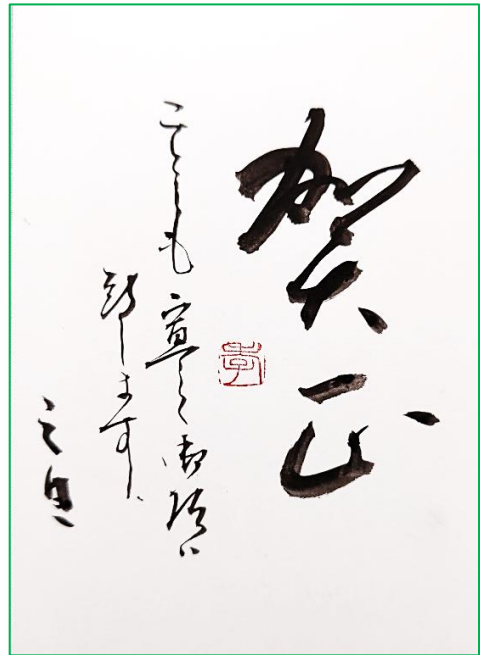 賀正
ことしも宜しく御願い
致します
元旦